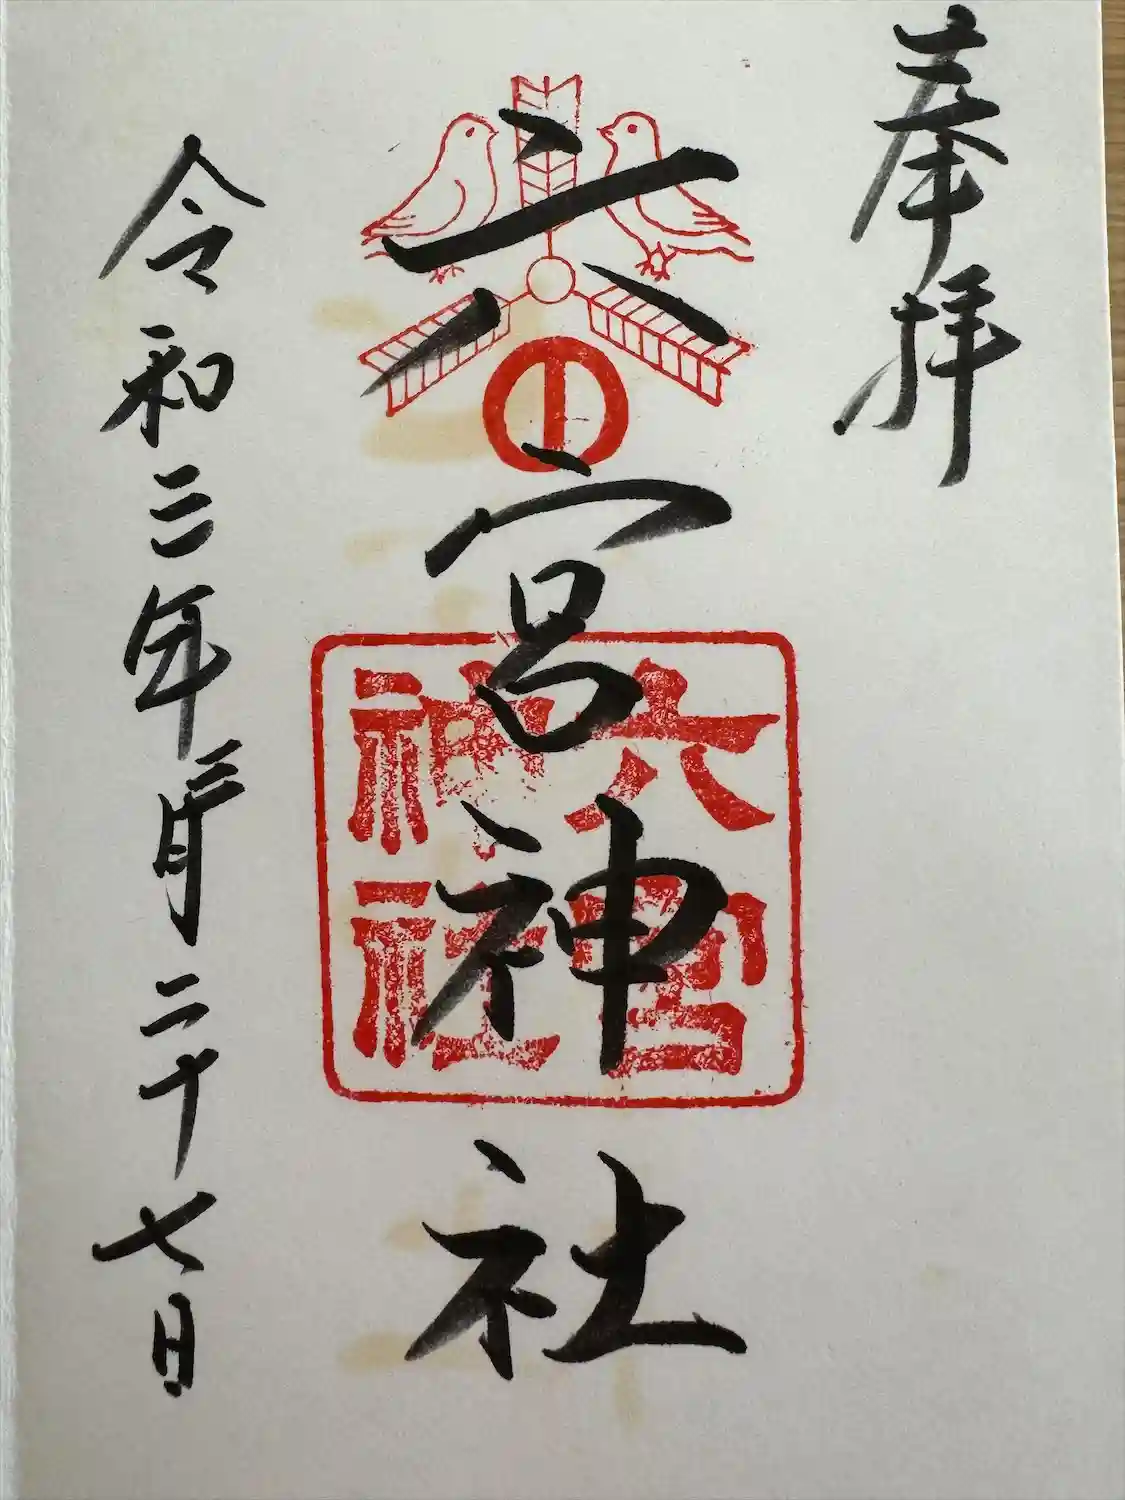 奉拝
六宮神社
六宮
神社
令和三年三月二十七日